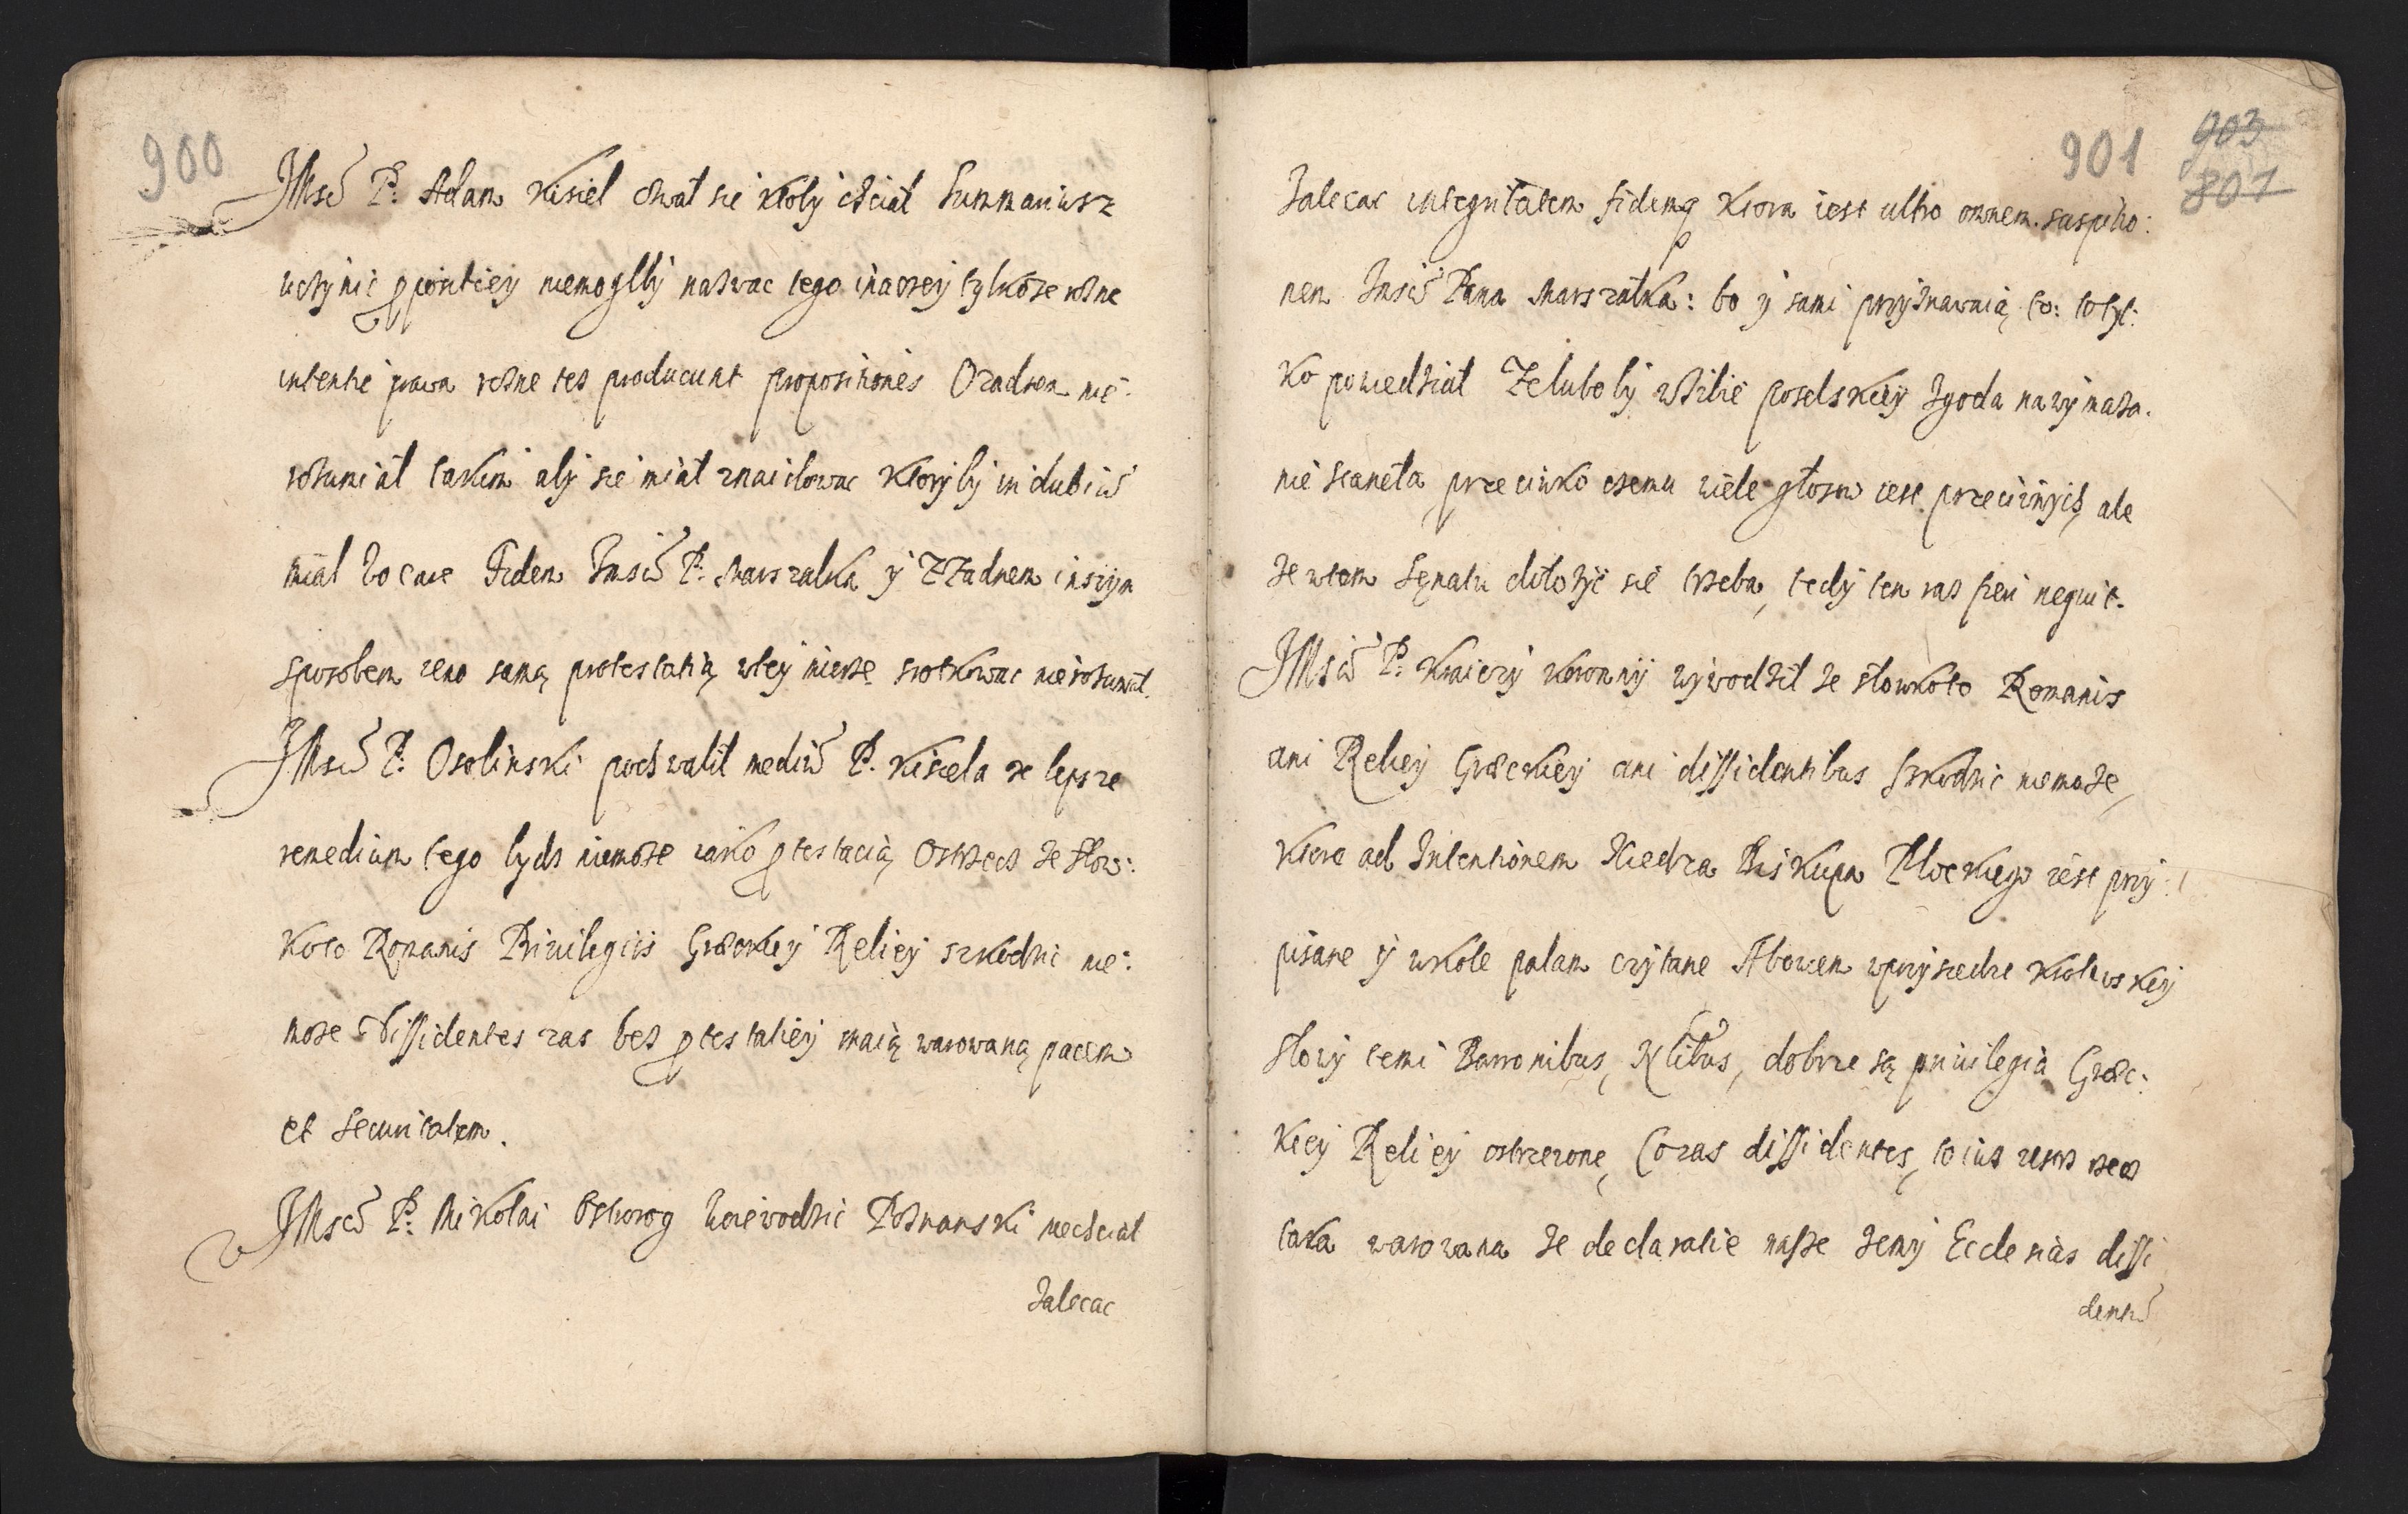 900
JMsć P. Adam Kisiel ozwał sie ktoby chciał Summariusz
uczynic ꝓpositiey niemogłby nazwac tego inaczey tylko ze rozne
intentie prawa rozne tes producunt propositiones O zadnem nie:
rozumiał takim aby sie miał znaidowac ktoryby in dubiū
miał vocare Fidem Jmsci P. Marszalka y Z Zadnem inszym
sposobem ieno samą protestatią wtey mierze srotkowac nierozumiał.
JMsć P. Osolinski pochwalił mediū P. Kisiela ze lepsze
remedium tego bydz niemoze iako ꝓtestacią Ostrzedz ze słow:
koto Romanis Privilegiis Græckiey Reliey szkodzic nie:
moze Dissidentes zas bez ꝓtestatiey maią warowaną pacem
et securitatem.
JMsć P. Mikołai Ostrorog Woiewodzic Poznanski niechciał
Zalecac
901
903
801
Zalecac integritatem fidemq ktora iest ultro omnem suspitio:
nem Jmsci Pana Marszałka: bo y sami przyznawaią to: to tyl:
ko powiedział Ze luboby w Izbie poselskiey Zgoda na wymaza.
nie staneła przeciwko czemu wiele głosow iest przeciwnych, ale
ze wtem Senatu dołozyć sie trzeba, tedy ten raz fieri nequit.
JMsć P. Kraiczy Koronny wywodził ze słowkoto Romanis
ani Reliey Græckiey ani dissidentibus szkodzic niemoze,
ktore ad Intentionem Xiedza Biskupa Plockiego iest przy:
pisane y wkole palam czytane Abowiem w przysiedze Krolewskiey
słowy temi Baronibus, Nlibus, dobrze są privilegia Græc:
kiey Reliey ostrzezone, Co zas dissidentes, to iuz
taka warowana ze declaratie nasze zemy Ecclesias dissi
dentiū